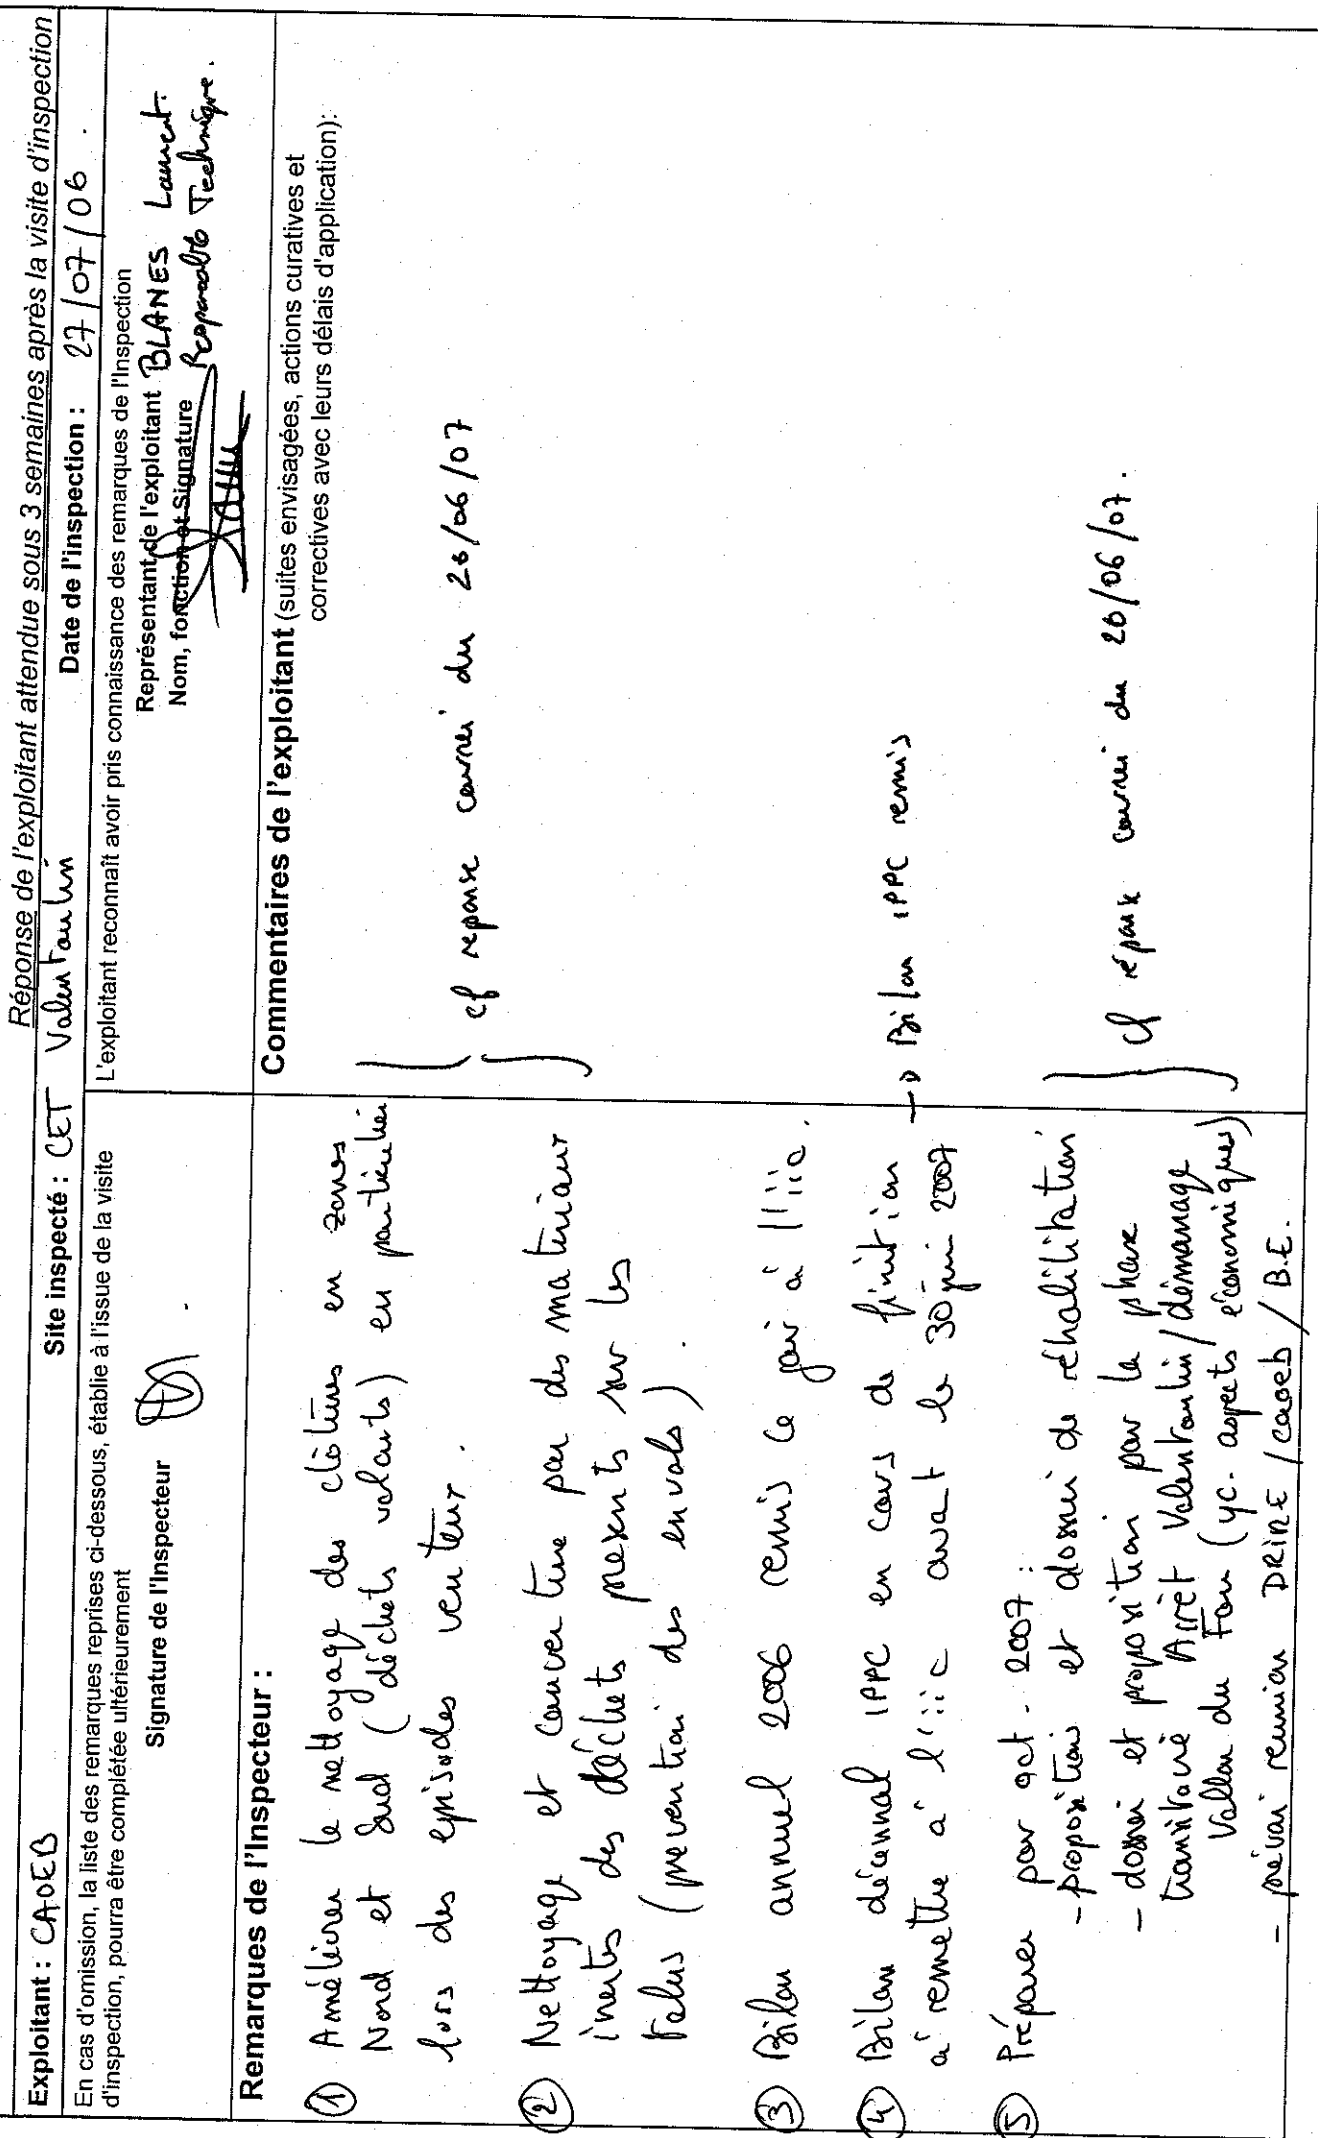 Réponse de l'exploitant attendue sous 3 semaines après la visite d'inspection
Exploitant : CAOEB
Site inspecté : CET Valentoulin
Date de l'inspection : 27/07/06
En cas d'omission, la liste des remarques reprises ci-dessous, établie à l'issue de la visite
d'inspection, pourra être complétée ultérieurement
Signature de l'Inspecteur
L'exploitant reconnaît avoir pris connaissance des remarques de l'Inspection
Représentant de l'exploitant BLANES Laurent.
Nom, fonction et Signature Responsable Technique.
Remarques de l'Inspecteur :
① Améliorer le nettoyage des clôtures en zones
Nord et Sud (déchets volants) en particulier
lors des episodes venteux.
② Nettoyage et couverture par des materiaux
inertes des déchets presents sur les
talus (prevention des envols).
③ Bilan annuel 2006 remis ce jour à l'iic.
④ Bilan décennal IPPC en cours de finition
à remettre à l'iic avant le 30 juin 2007
⑤ Préparer pour oct. 2007 :
- proposition et dossier de réhabilitation
- dossier et proposition pour la phase
transitoire Arrêt Valentoulin/démarrage
Vallon du Fou (yc. aspects économiques)
- prévoir reunion DRIRE/caoeb/B.E.
Commentaires de l'exploitant (suites envisagées, actions curatives et
correctives avec leurs délais d'application):
cf reponse courrier du 26/06/07
→ Bilan IPPC remis
cf réponse courrier du 26/06/07.